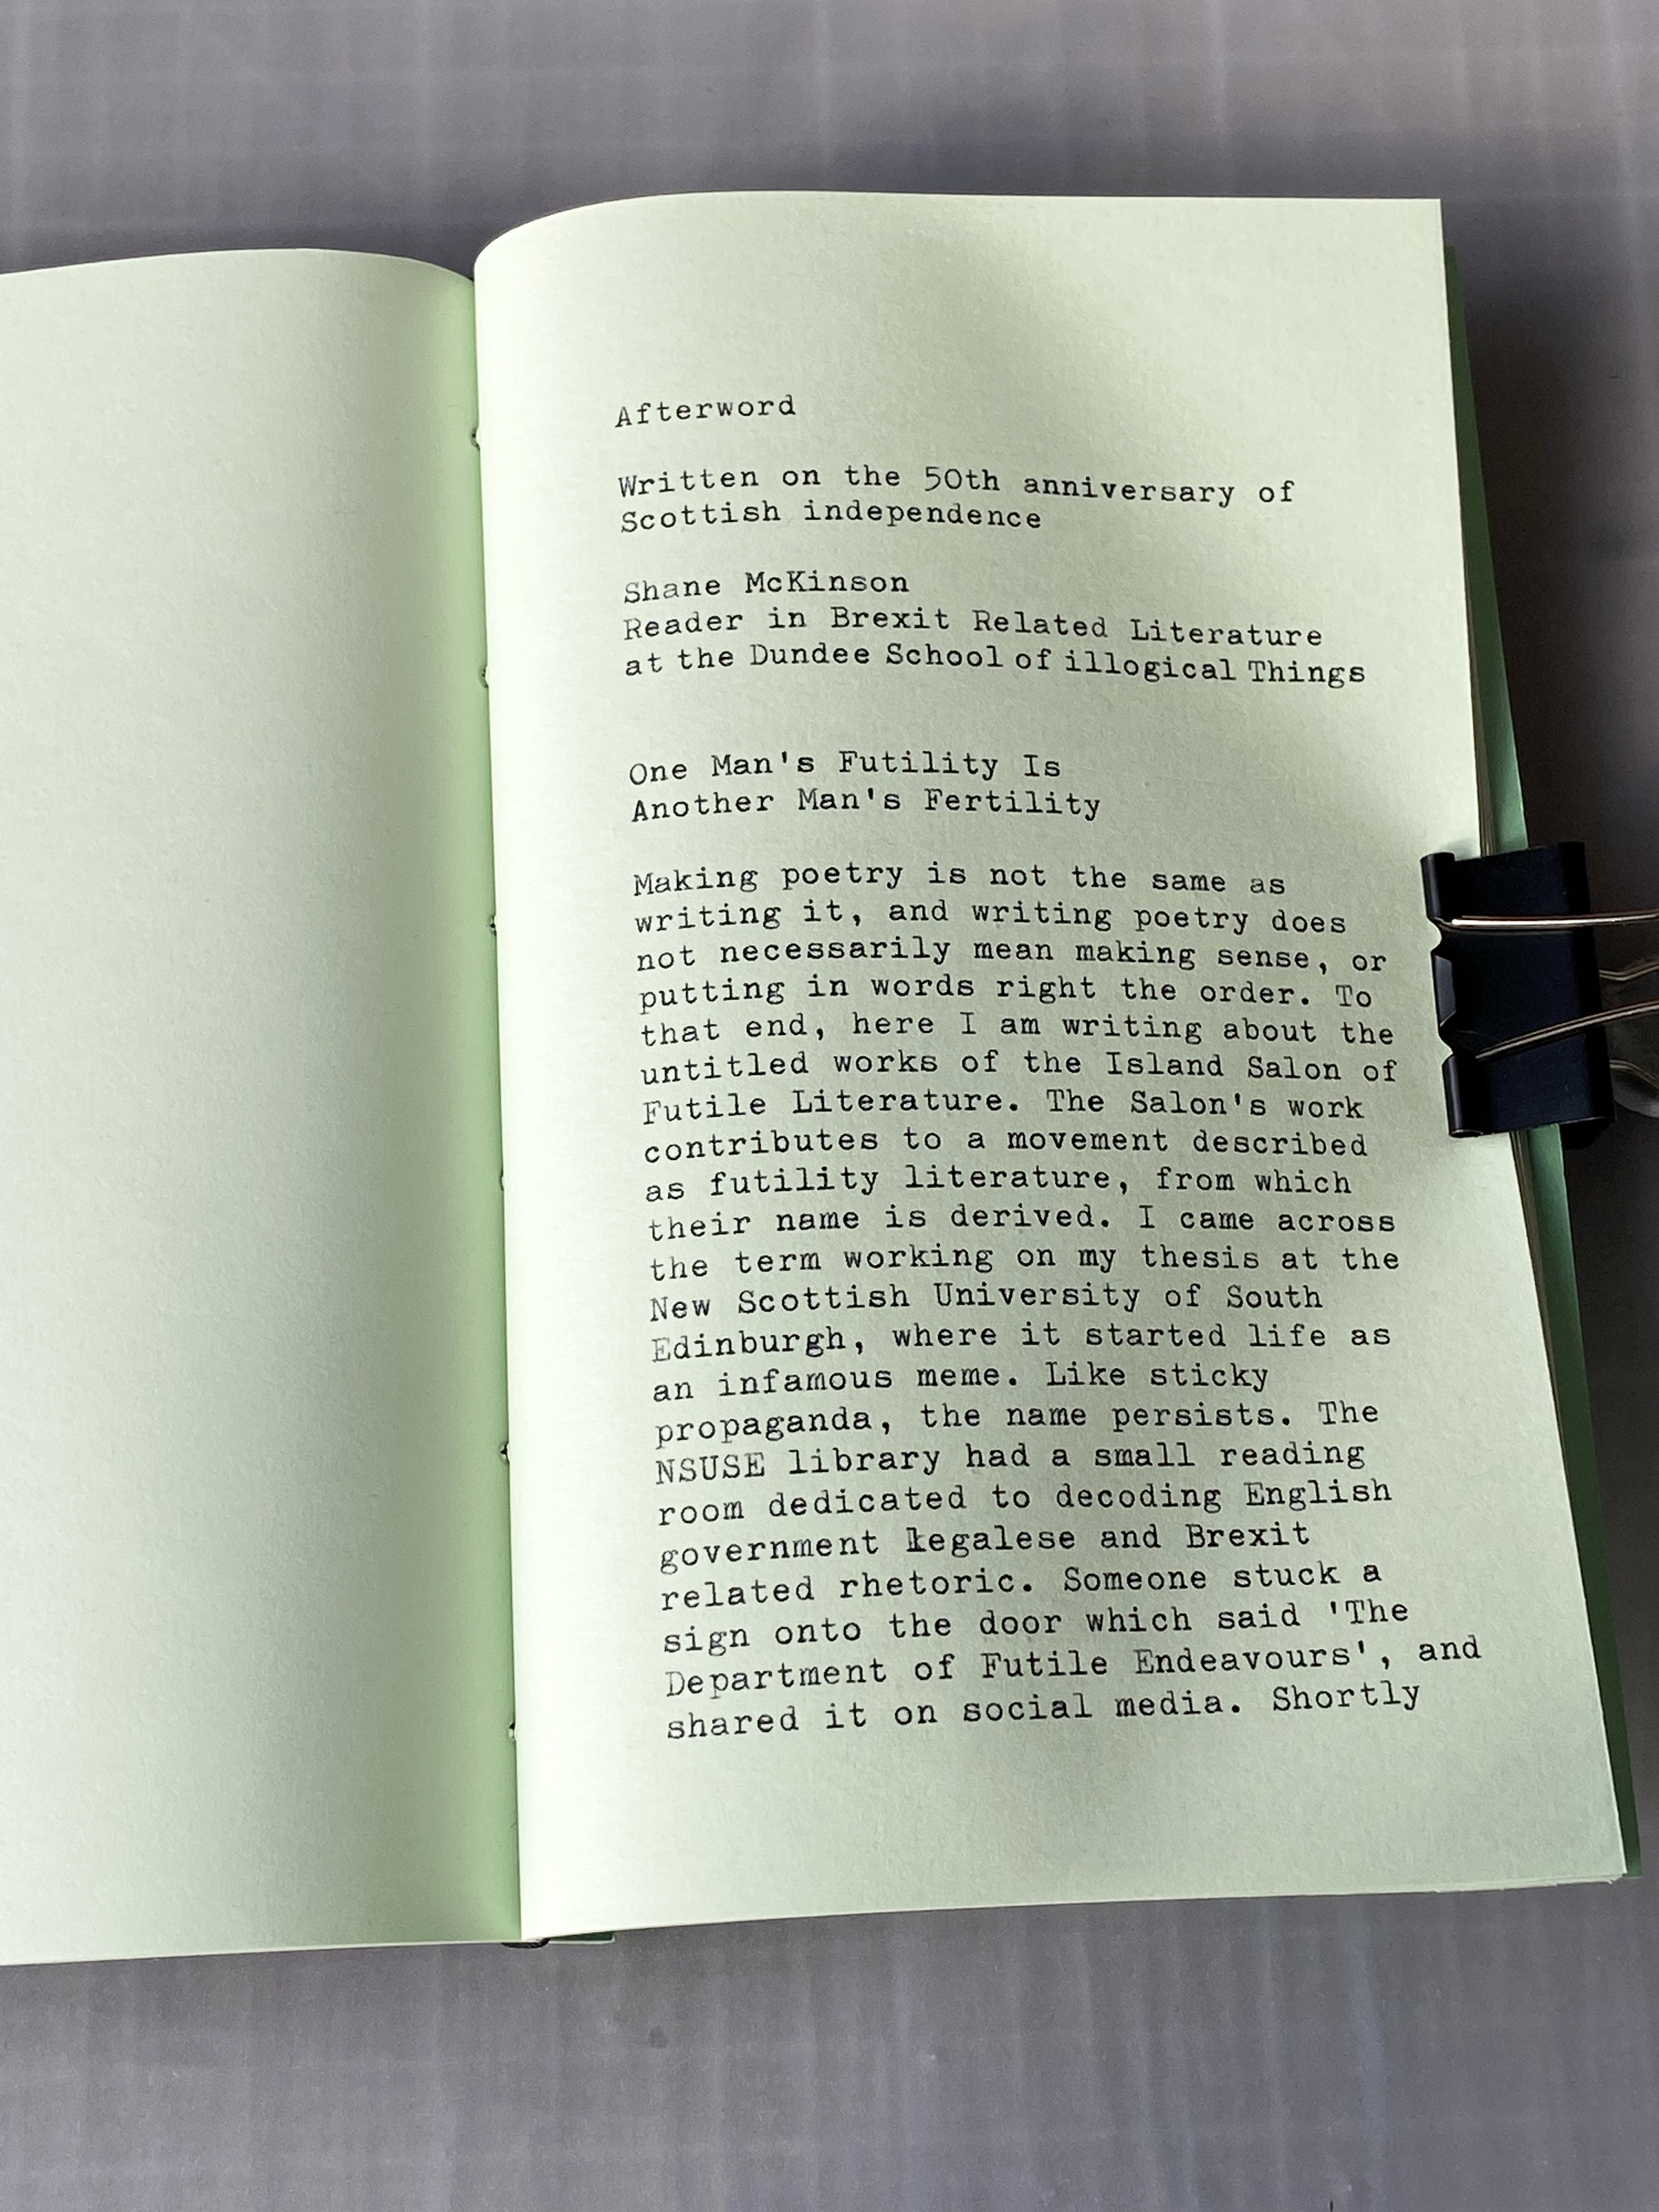 Afterword
Written on the 50th anniversary of
Scottish independence
Shane McKinson
Reader in Brexit Related Literature
at the Dundee School of illogical Things
One Man's Futility Is
Another Man's Fertility
Making poetry is not the same as
writing it, and writing poetry does
not necessarily mean making sense, or
putting in words right the order. To
that end, here I am writing about the
untitled works of the Island Salon of
Futile Literature. The Salon's work
contributes to a movement described
as futility literature, from which
their name is derived. I came across
the term working on my thesis at the
New Scottish University of South
Edinburgh, where it started life as
an infamous meme. Like sticky
propaganda, the name persists. The
NSUSE library had a small reading
room dedicated to decoding English
government legalese and Brexit
related rhetoric. Someone stuck a
sign onto the door which said 'The
Department of Futile Endeavours', and
shared it on social media. Shortly